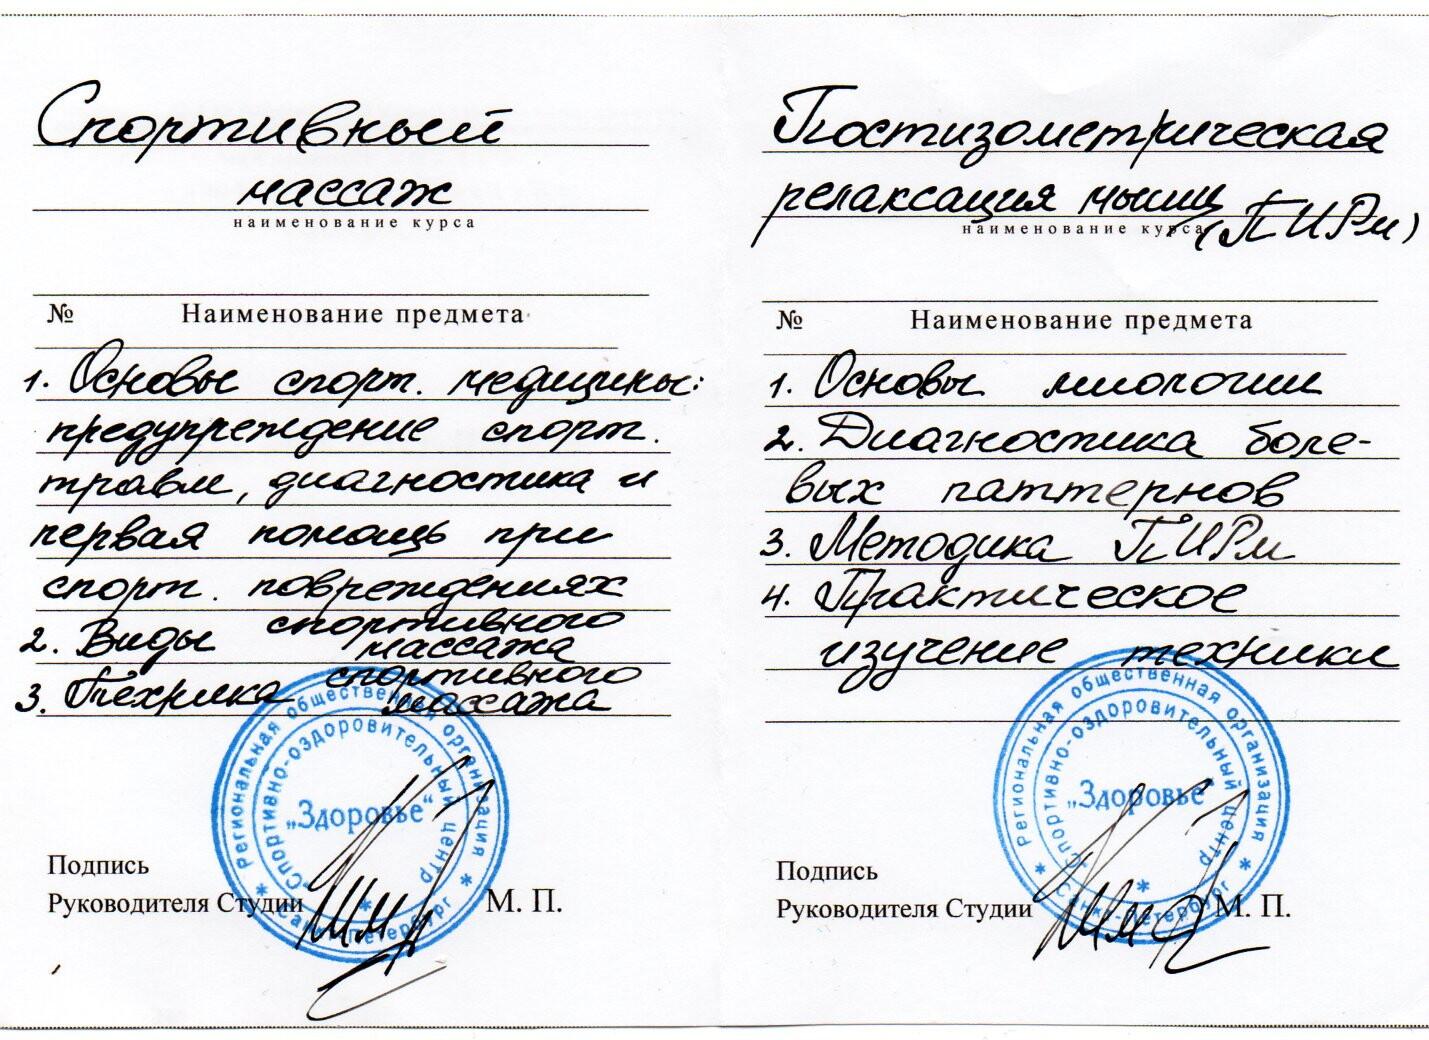 Спортивный
массаж
наименование курса
№ Наименование предмета
1. Основы спорт. медицины:
предупреждение спорт.
травм, диагностика и
первая помощь при
спорт. повреждениях
2. Виды спортивного
массажа
3. Техника спортивного
массажа
Региональная общественная организация
Спортивно-оздоровительный центр
„Здоровье“
Санкт-Петербург
Подпись
Руководителя Студии М. П.
Постизометрическая
релаксация мышц
(ПИРм)
наименование курса
№ Наименование предмета
1. Основы миологии
2. Диагностика боле-
вых паттернов
3. Методика ПИРм
4. Практическое
изучение техники
Региональная общественная организация
Спортивно-оздоровительный центр
„Здоровье“
Санкт-Петербург
Подпись
Руководителя Студии М. П.